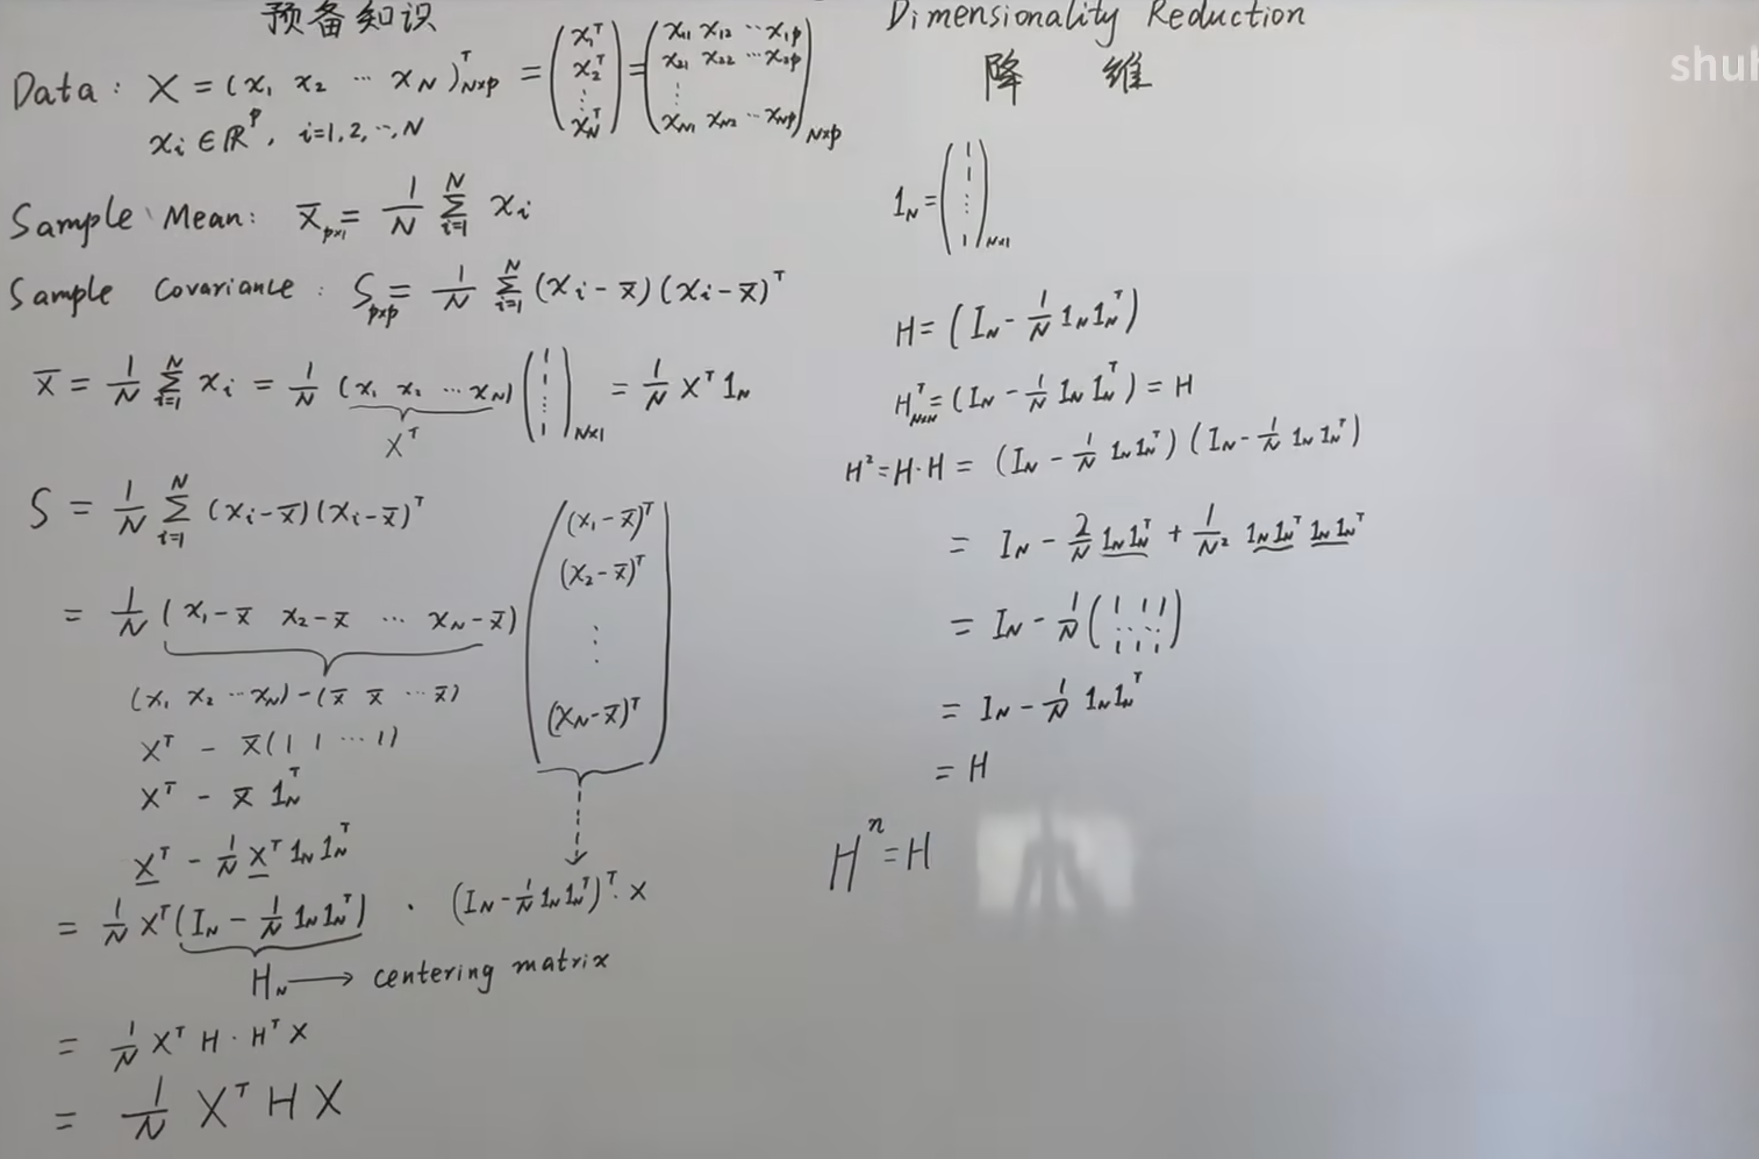 预备知识
Data: X = (x₁ x₂ ⋯ x_N)ᵀ_{N×p} = (x₁ᵀ x₂ᵀ ⋮ x_Nᵀ) = (x₁₁ x₁₂ ⋯ x₁ₚ
x₂₁ x₂₂ ⋯ x₂ₚ
⋮
x_{N1} x_{N2} ⋯ x_{Np})_{N×p}
xᵢ ∈ ℝᵖ, i=1,2,⋯,N
Sample Mean: x̄_{p×1} = 1/N Σ_{i=1}^{N} xᵢ
Sample Covariance: S_{p×p} = 1/N Σ_{i=1}^{N} (xᵢ - x̄)(xᵢ - x̄)ᵀ
x̄ = 1/N Σ_{i=1}^{N} xᵢ = 1/N (x₁ x₂ ⋯ x_N) (1 1 ⋮ 1)_{N×1} = 1/N Xᵀ 1_N
Xᵀ
S = 1/N Σ_{i=1}^{N} (xᵢ - x̄)(xᵢ - x̄)ᵀ
= 1/N (x₁ - x̄ x₂ - x̄ ⋯ x_N - x̄)
((x₁ - x̄)ᵀ
(x₂ - x̄)ᵀ
⋮
(x_N - x̄)ᵀ)
(x₁ x₂ ⋯ x_N) - (x̄ x̄ ⋯ x̄)
Xᵀ - x̄(1 1 ⋯ 1)
Xᵀ - x̄ 1_Nᵀ
Xᵀ - 1/N Xᵀ 1_N 1_Nᵀ
= 1/N Xᵀ(I_N - 1/N 1_N 1_Nᵀ) · (I_N - 1/N 1_N 1_Nᵀ)ᵀ · X
H_N → centering matrix
= 1/N Xᵀ H · Hᵀ X
= 1/N Xᵀ H X
Dimensionality Reduction
降 维
1_N = (1 1 ⋮ 1)_{N×1}
H = (I_N - 1/N 1_N 1_Nᵀ)
Hᵀ_{N×N} = (I_N - 1/N 1_N 1_Nᵀ) = H
H² = H·H = (I_N - 1/N 1_N 1_Nᵀ)(I_N - 1/N 1_N 1_Nᵀ)
= I_N - 2/N 1_N 1_Nᵀ + 1/N² 1_N 1_Nᵀ 1_N 1_Nᵀ
= I_N - 1/N (1 1 1 ⋯ 1 1 1)
= I_N - 1/N 1_N 1_Nᵀ
= H
Hⁿ = H